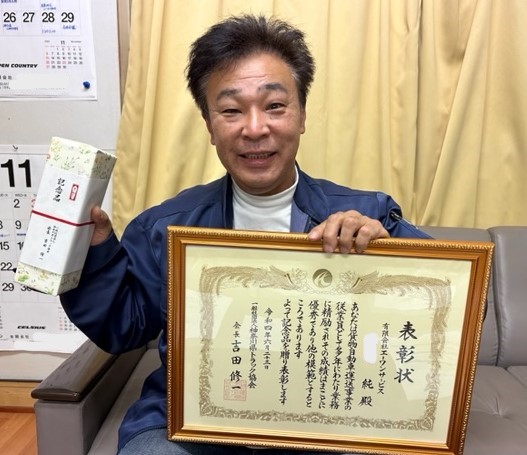 26 27 28 29
11
OPEN COUNTRY
11
記念品
CELSIUS
表彰状
有限会社エ・ワンサービス
純 殿
あなたは貨物自動車運送事業の
従業員として多年にわたり業務
に精励されその成績はまことに
優秀であり他の模範とすると
ころであります
よって記念品を贈り表彰します
令和四年六月二十三日
一般社団法人神奈川県トラック協会
会長 吉田修一